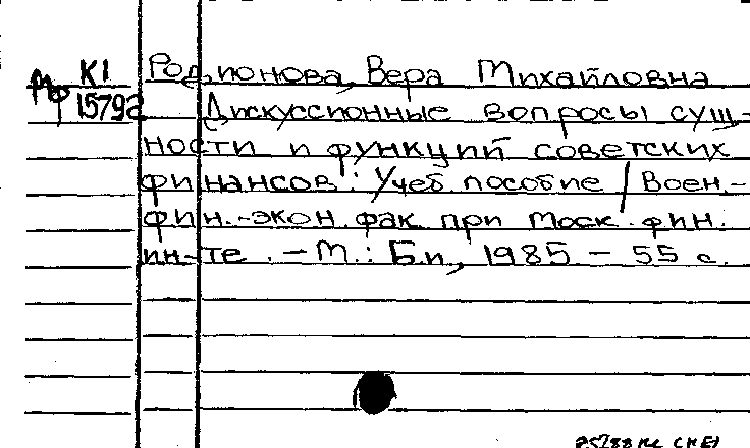 К1 Родионова, Вера Михайловна
Мф 15792 Дискуссионные вопросы сущ-
ности и функций советских
финансов: Учеб. пособие / Воен.-
фин.-экон. фак. при Моск. фин.
ин-те. – М.: Б.и., 1985 – 55 с.